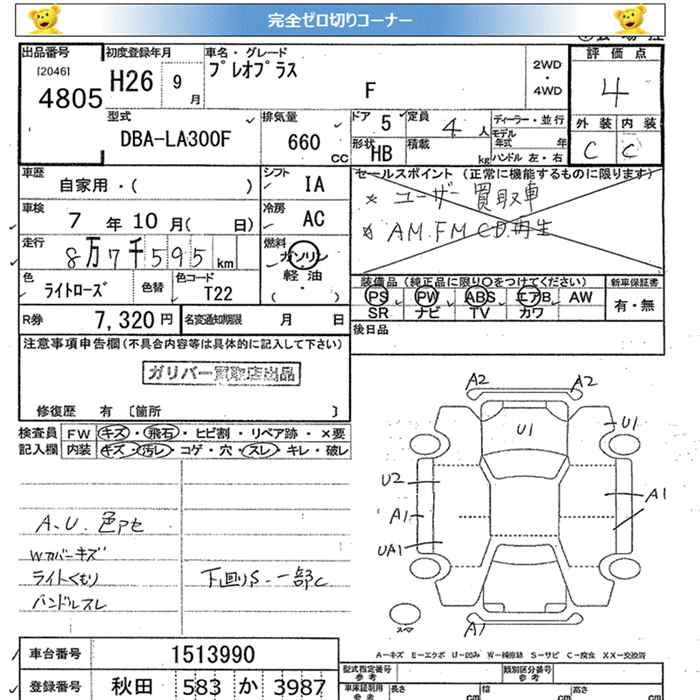 完全ゼロ切りコーナー
出品番号
[2046]
4805
初度登録年月
H26 9 月
車名・グレード
プレオプラス
F
2WD
・
4WD
評価点
4
外装 内装
C C
型式
DBA-LA300F
排気量
660
CC
ドア 5
定員 4 人
形状 HB
積載 kg
ディーラー・並行
モデル
年式 年
ハンドル 左・右
車歴
自家用・( )
シフト
IA
車検
7 年 10 月( 日)
冷房
AC
走行
8万7千595 km
燃料
ガソリン
軽油
( ・ )
色
ライトローズ
色替
色コード
T22
R券 7,320円
名変通知期限 月 日
セールスポイント (正常に機能するものに限ります)
※ ユーザー買取車
※ AM.FM CD.再生
装備品(純正品に限り○をつけてください)
PS PW ABS エアB AW
SR ナビ TV カワ
新車保証書
有・無
後日品
注意事項申告欄(不具合内容等は具体的に記入して下さい)
ガリバー買取店出品
修復歴 有 〔箇所 〕
検査員
記入欄
FW キズ・飛石・ヒビ割・リペア跡・×要
内装 キズ・汚レ・コゲ・穴・スレ・キレ・破レ
A.U.色アセ
Wカバーキズ
ライトくもり
ハンドルスレ
下回りS.一部C
A2 A2
U1
U1
U2
A1
A1
UA1
A1
スペア
A−キズ E−エクボ U−凹み W−補修跡 S−サビ C−腐食 XX−交換済
車台番号 1513990
登録番号 秋田 583 か 3987
型式指定番号
参考
類別区分番号
参考
車庫証明用
参考
長さ cm
幅 cm
高さ cm